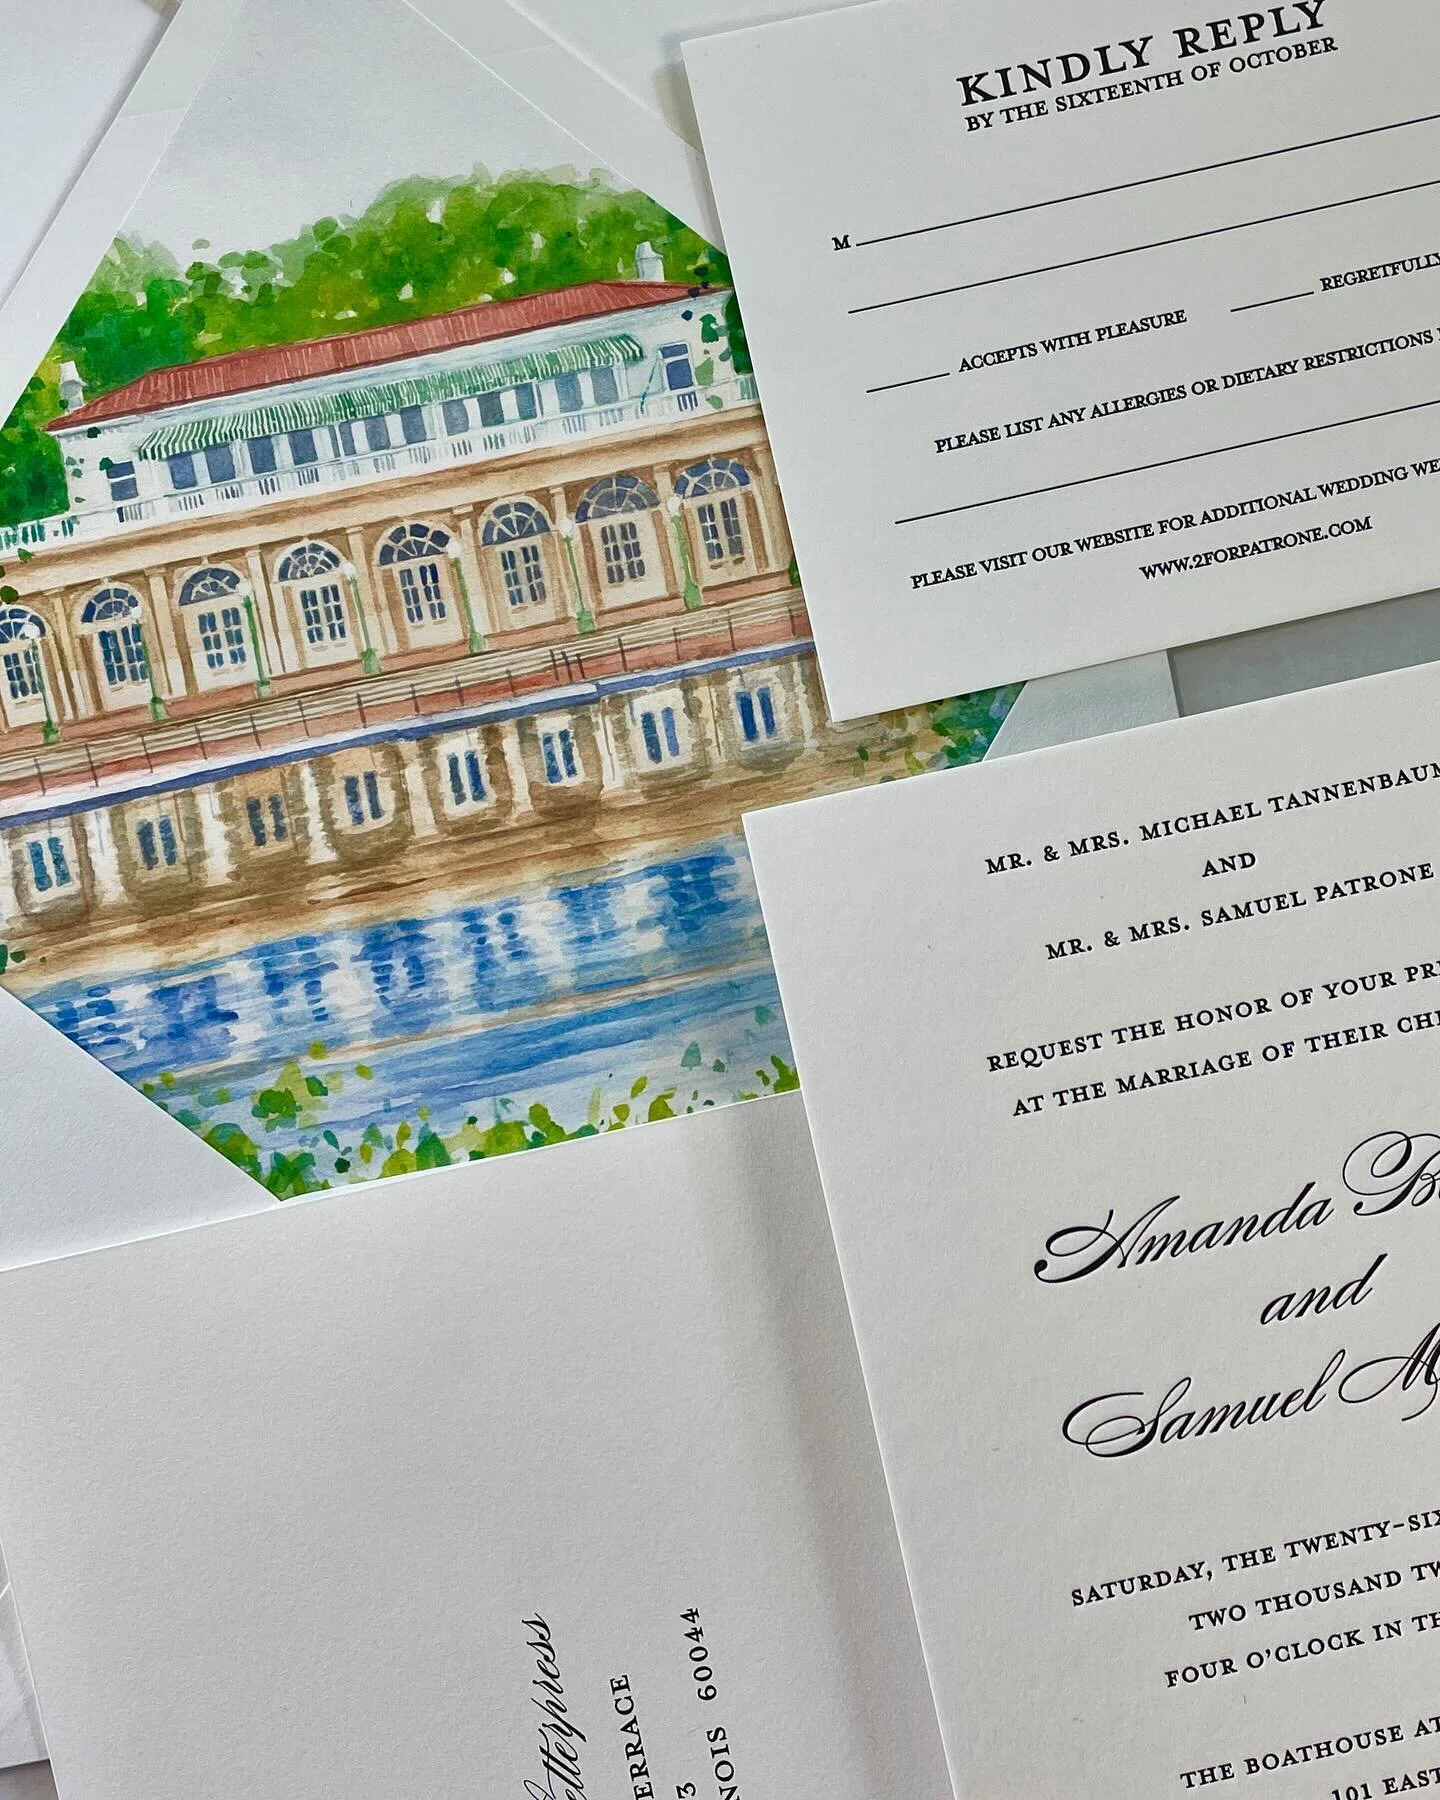 KINDLY REPLY
BY THE SIXTEENTH OF OCTOBER
M
ACCEPTS WITH PLEASURE
REGRETFULLY
PLEASE LIST ANY ALLERGIES OR DIETARY RESTRICTIONS
PLEASE VISIT OUR WEBSITE FOR ADDITIONAL WEDDING WE
WWW.2FORPATRONE.COM
MR. & MRS. MICHAEL TANNENBAUM
AND
MR. & MRS. SAMUEL PATRONE
REQUEST THE HONOR OF YOUR PR
AT THE MARRIAGE OF THEIR CH
Amanda B
and
Samuel M
SATURDAY, THE TWENTY-SIX
TWO THOUSAND TW
FOUR O'CLOCK IN TH
THE BOATHOUSE AT
101 EAST
etterpress
ERRACE
3
NOIS 60044